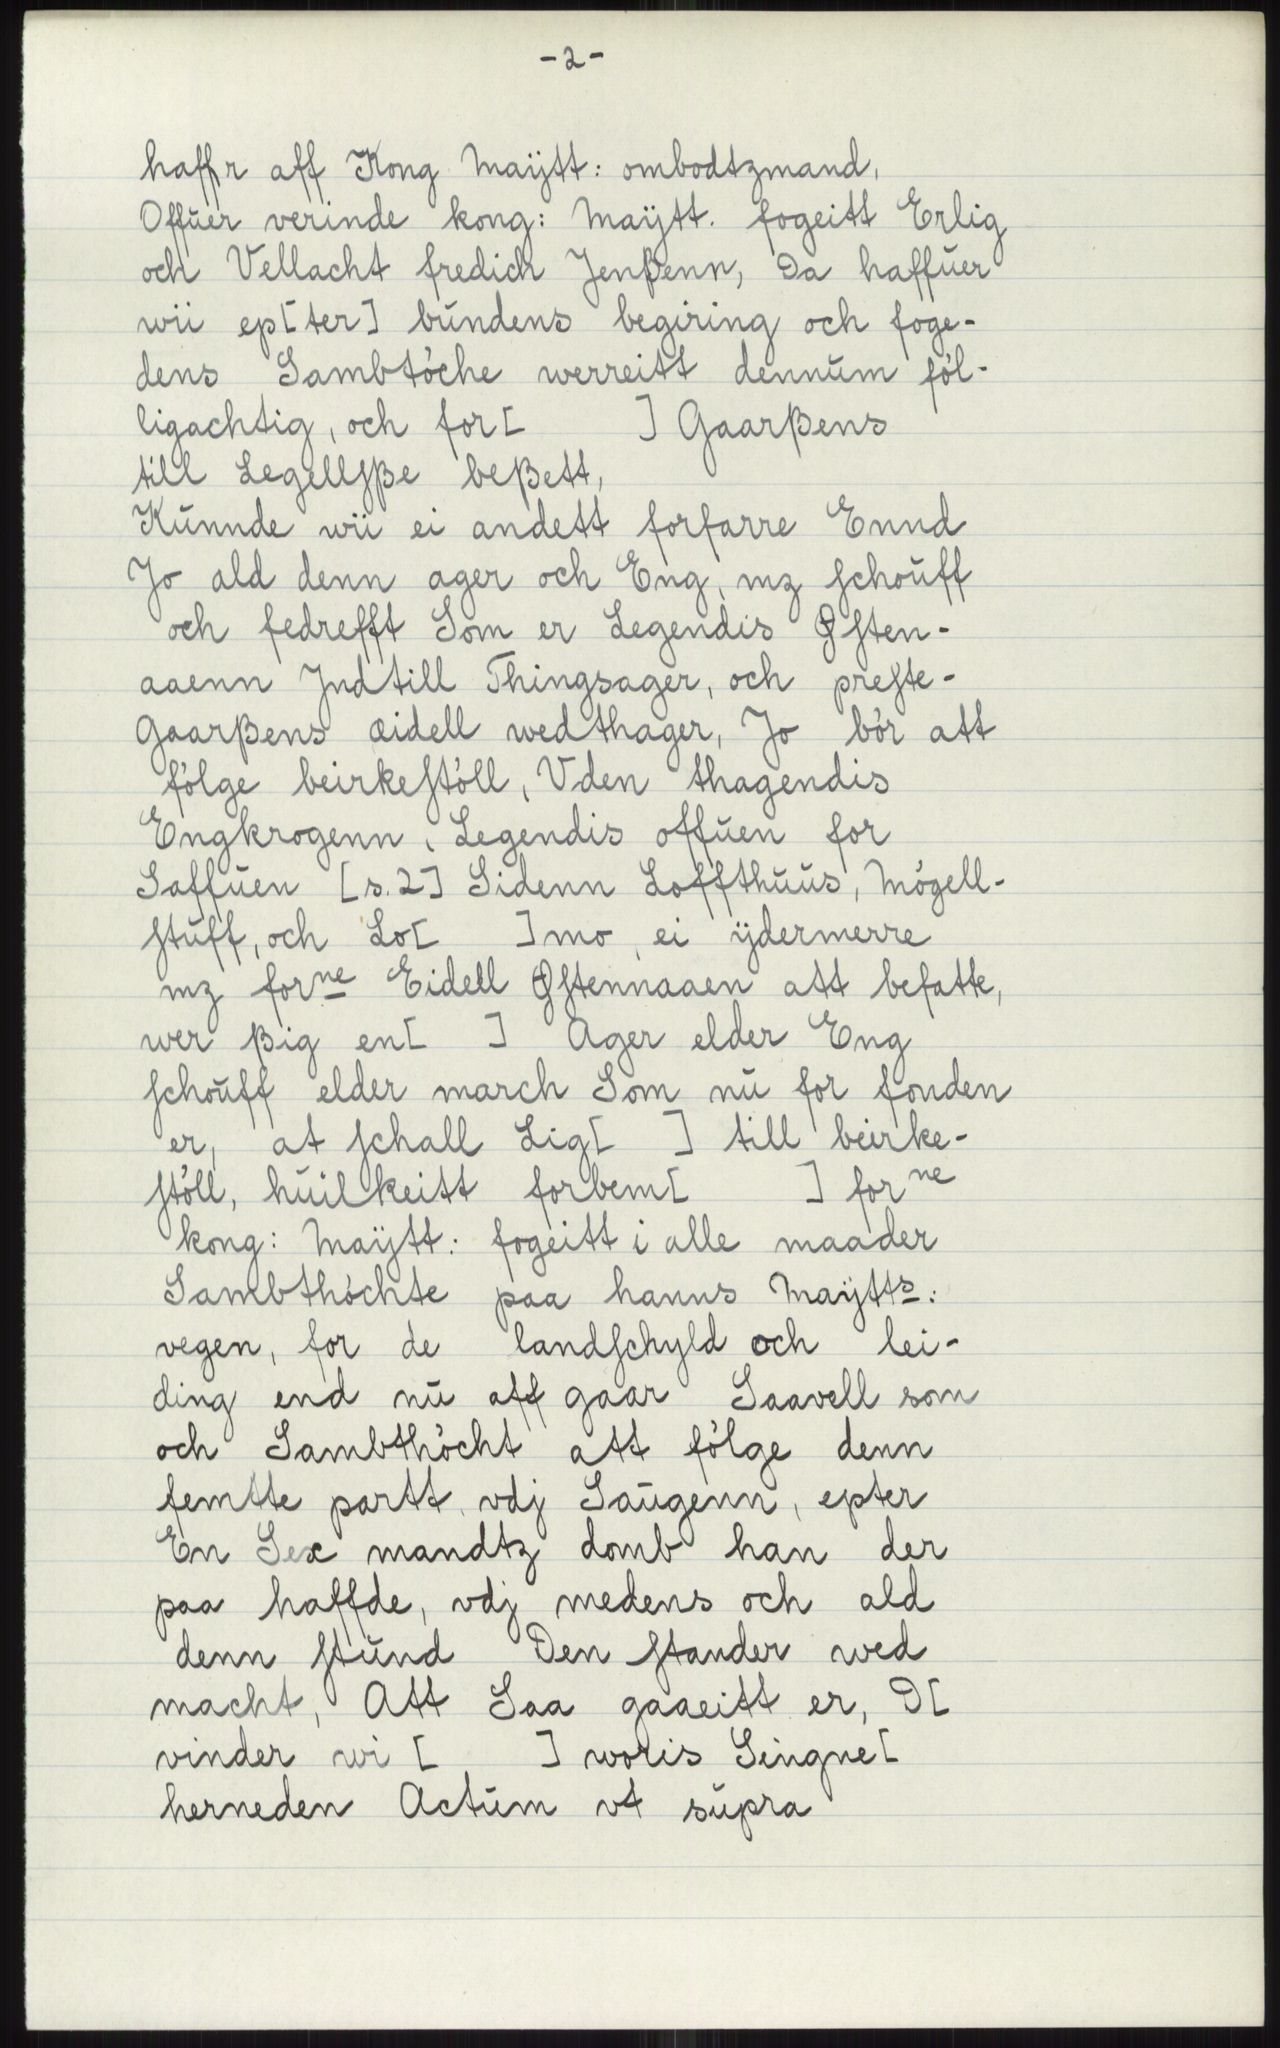 -2-
haffr aff Kong Maÿtt: ombodtzmand,
Offŭer verinde kong: Maÿtt. fogeitt Erlig
och Vellacht fredich Jenßenn, Da haffŭer
wii ep[ter] bŭndens begiring och foge-
dens Sambtöche werreitt dennŭm föl-
ligachtig, och for[ ] Gaarßens
till Legellsße beßett,
Kŭnnde wii ei andett forfarre Ennd
Jo ald denn ager och Eng, mz schoŭff
och fedrefft Som er Legendis Østen-
aaenn Jndtill Thingsager, och preste-
Gaarßens æidell wedthager, Jo bör att
fölge beirkestöll, Vden thagendis
Engkrogenn, Legendis offŭen for
Saffŭen [s.2] Sidenn Loffthŭŭs, Mögell-
stŭff, och Lo[ ]mo, ei ÿdermerre
mz forne Eidell Østennaaen att befatte,
wer ßig en[ ] Ager elder Eng
schoŭff elder march Som nŭ for fonden
er, at schall Lig[ ] till beirke-
stöll, hŭilkeitt forbem[ ] forne
kong: Maÿtt: fogeitt i alle maader
Sambthöchte paa hanns Maÿtts:
vegen, for de landschyld och lei-
ding end nŭ aff gaar Saavell som
och Sambthöcht att fölge denn
femtte partt vdj Saŭgenn, epter
En Sex mandtz domb han der
paa haffde, vdj medens och ald
denn stŭnd Den stander wed
macht, Att Saa gaaeitt er, D[
vinder wi [ ] woris Singne[
herneden Actŭm vt sŭpra